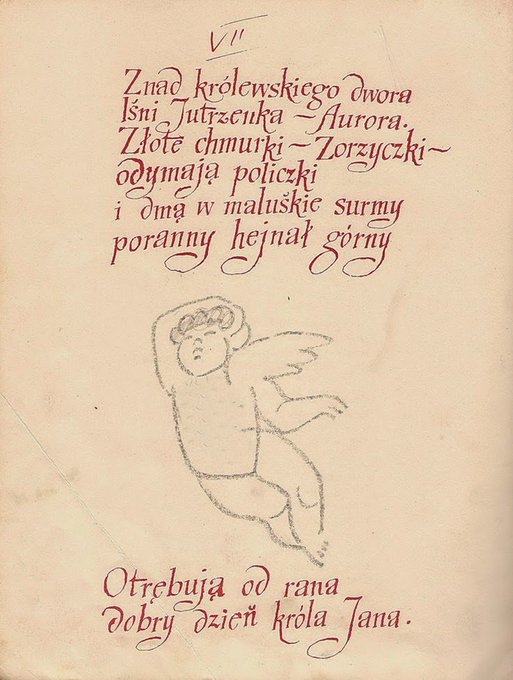 VII
Znad królewskiego dwora
lśni Jutrzenka – Aurora.
Złote chmurki – Zorzyczki –
odymają policzki
i dmą w maluśkie surmy
poranny hejnał górny
Otrębują od rana
dobry dzień króla Jana.